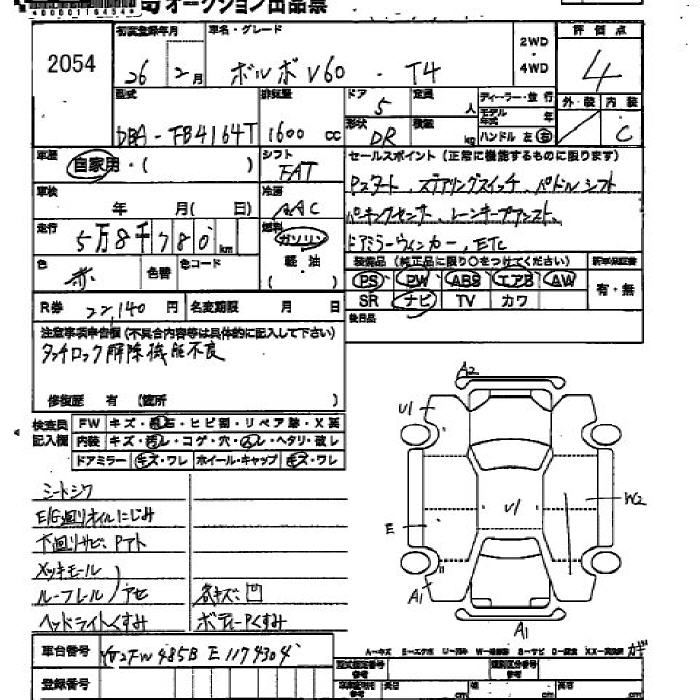 オークション出品票
2054
初度登録年月
26年 2月
車名・グレード
ボルボ V60 . T4
2WD
4WD
評価点
4
型式
DBA-FB4164T
排気量
1600 cc
ドア
5
定員
人
形状
DR
積載
kg
ディーラー・並行
モデル年式 年
ハンドル 左 右
外装 内装
C
車歴
自家用・( )
シフト
FAT
セールスポイント (正常に機能するものに限ります)
Pスタート、ステアリングスイッチ、パドルシフト
パーキングセンサー、レーンキープアシスト、
ドアミラーウィンカー、ETC
車検
年 月( 日)
冷房
AAC
走行
5万8千780 km
燃料
ガソリン
軽・油
( )
色
赤
色替
色コード
装備品 (純正品に限り○をつけてください)
新車保証書
PS PW ABS エアB AW
SR ナビ TV カワ
有・無
R券 22,140 円
名変期限 月 日
後日品
注意事項申告欄 (不具合内容等は具体的に記入して下さい)
タッチロック解除機能不良
修復歴 有 (箇所 )
検査員記入欄
FW キズ・飛石・ヒビ割・リペア跡・X
内装 キズ・汚レ・コゲ・穴・ヘタリ・破レ
ドアミラー キズ・ワレ ホイール・キャップ キズ・ワレ
シートシワ
E/G廻りオイルにじみ
下廻りサビ、Pアト
メッキモール
ルーフレール アセ
各キズ凹
ヘッドライトくすみ
ボディーPくすみ
A2
U1
U1
W2
E
A1
A1
車台番号
登録番号
A-キズ E-エクボ U-凹み
型式指定番号
参考
類別区分番号
参考
長さ cm
cm
高さ cm